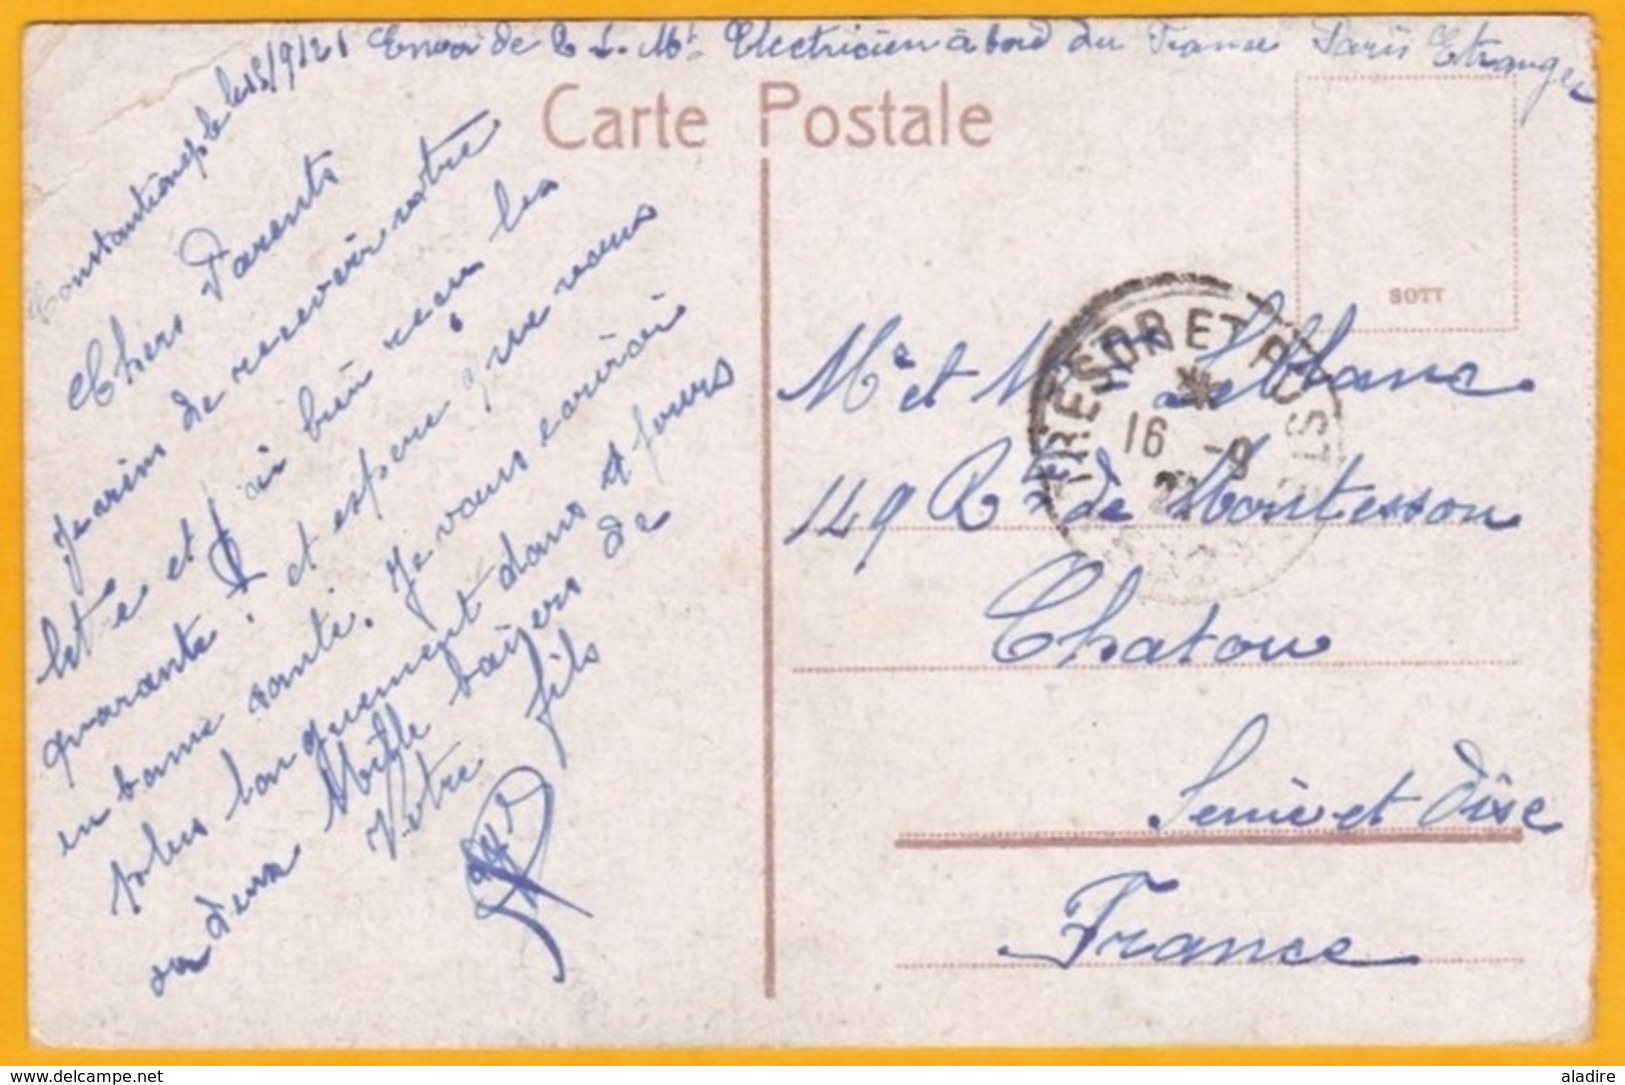 Constantinople le 15/9/21 Envoi de L. Mt Electricien à bord du France Paris Etranger
Carte Postale
Chers Parents
Je viens de recevoir votre
lettre et j'ai bien reçu les
quarante f et espère que vous
en bonne santé. Je vous écrirai
plus longuement dans 4 jours
ou deux Mille baisers de
Votre fils
SOTT
TRESOR ET POSTES
16 -9
21
Mr et Mme Leblanc
149 Rte de Montesson
Chatou
Seine et Oise
France